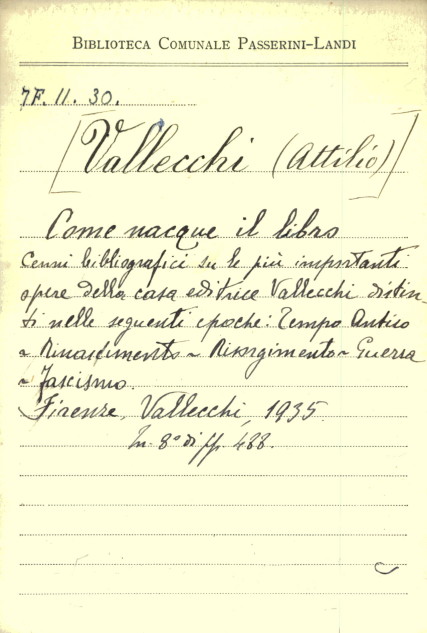 BIBLIOTECA COMUNALE PASSERINI-LANDI
7F. 11. 30.
[Vallecchi (Attilio)]
Come nacque il libro
Cenni bibliografici su le più importanti
opere della casa editrice Vallecchi distin-
ti nelle seguenti epoche: Tempo Antico
~ Rinascimento ~ Risorgimento ~ Guerra
~ Fascismo.
Firenze, Vallecchi, 1935.
In 8° di pp. 488.